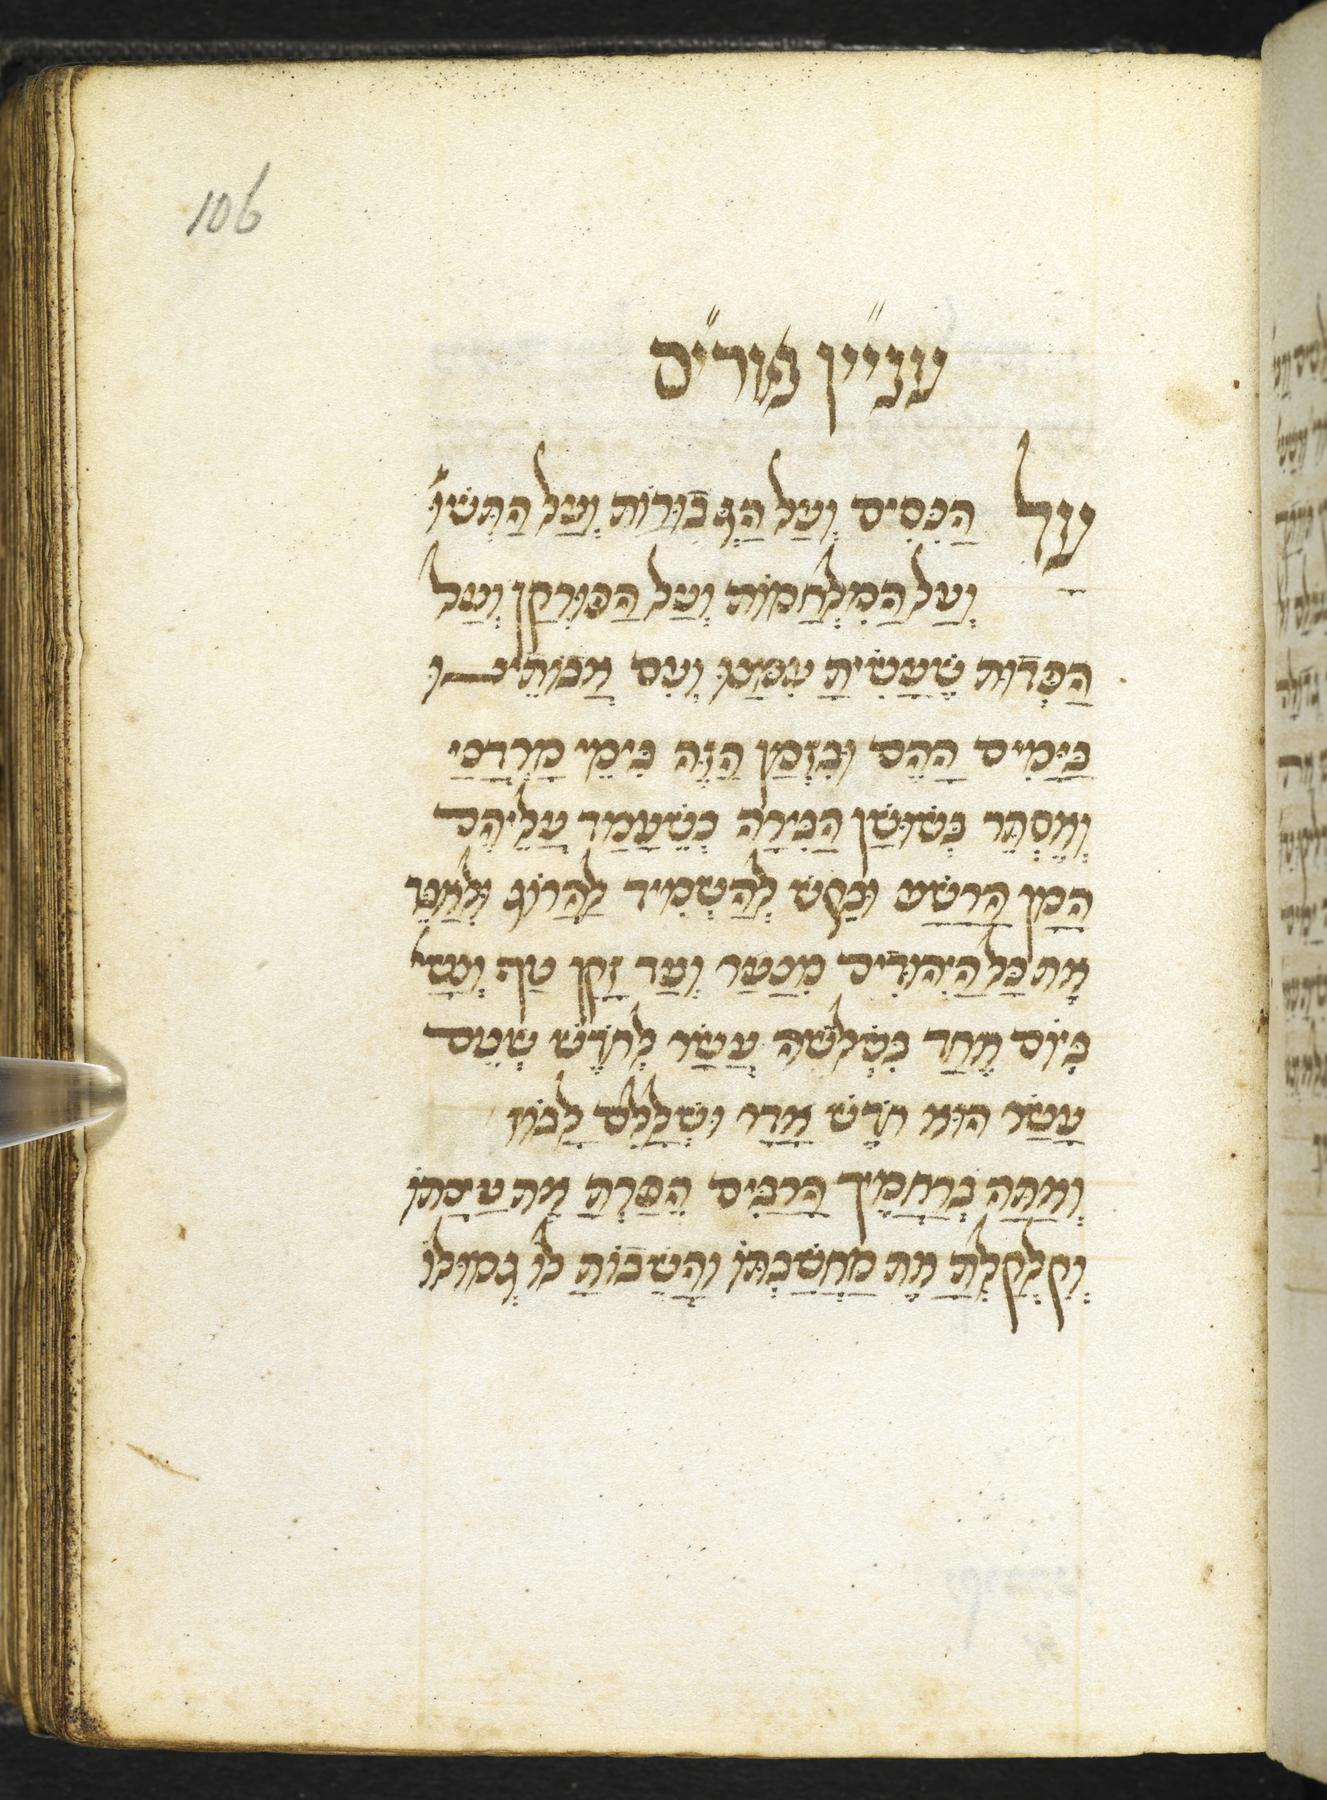 106
עני״ין פורי״ם
עַל הַנִּסִּים וְעַל הַגְּבוּרוֹת וְעַל הַתְּשׁוּ
וְעַל הַמִּלְחָמוֹת וְעַל הַפּוּרְקָן וְעַל
הַפְּדוּת שֶׁעָשִׂיתָ עִמָּנוּ וְעִם אֲבוֹתֵינוּ
בַּיָּמִים הָהֵם וּבִזְּמַן הַזֶּה בִּימֵי מָרְדֳּכַי
וְאֶסְתֵּר בְּשׁוּשַׁן הַבִּירָה כְּשֶׁעָמַד עֲלֵיהֶם
הָמָן הָרָשָׁע וּבִקֵּשׁ לְהַשְׁמִיד לַהֲרוֹג וּלְאַבֵּד
אֶת כָּל הַיְּהוּדִים מִנַּעַר וְעַד זָקֵן טַף וְנָשִׁי
בְּיוֹם אֶחָד בִּשְׁלֹשָׁה עָשָׂר לְחֹדֶשׁ שְׁנֵים
עָשָׂר הוּא חֹדֶשׁ אֲדָר וּשְׁלָלָם לָבוֹז
וְאַתָּה בְּרַחֲמֶיךָ הָרַבִּים הֵפַרְתָּ אֶת עֲצָתוֹ
וְקִלְקַלְתָּ אֶת מַחֲשַׁבְתּוֹ וַהֲשֵׁבוֹתָ לוֹ גְּמוּלוֹ